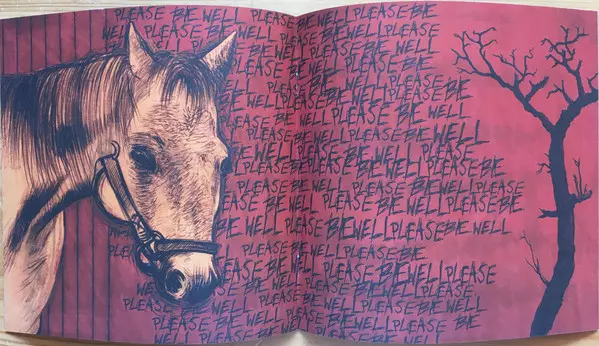 PLEASE BE WELL PLEASE BE
PLEASE BE WELL PLEASE BE
WELL PLEASE BE WELL
PLEASE BE WELL PLEASE
PLEASE BE WELL PLEASE BE
PLEASE BE WELL
PLEASE BE WELL
BE WELL PLEASE
PLEASE BE WELL PLEASE BE
PLEASE BE WELL PLEASE
PLEASE BE WELL PLEASE BE
PLEASE BE WELL PLEASE BE WELL
PLEASE BE WELL PLEASE BE
PLEASE BE WELL PLEASE BE WELL PLEASE
PLEASE BE WELL PLEASE BE WELL
PLEASE BE WELL PLEASE BE WELL
PLEASE BE WELL PLEASE BE